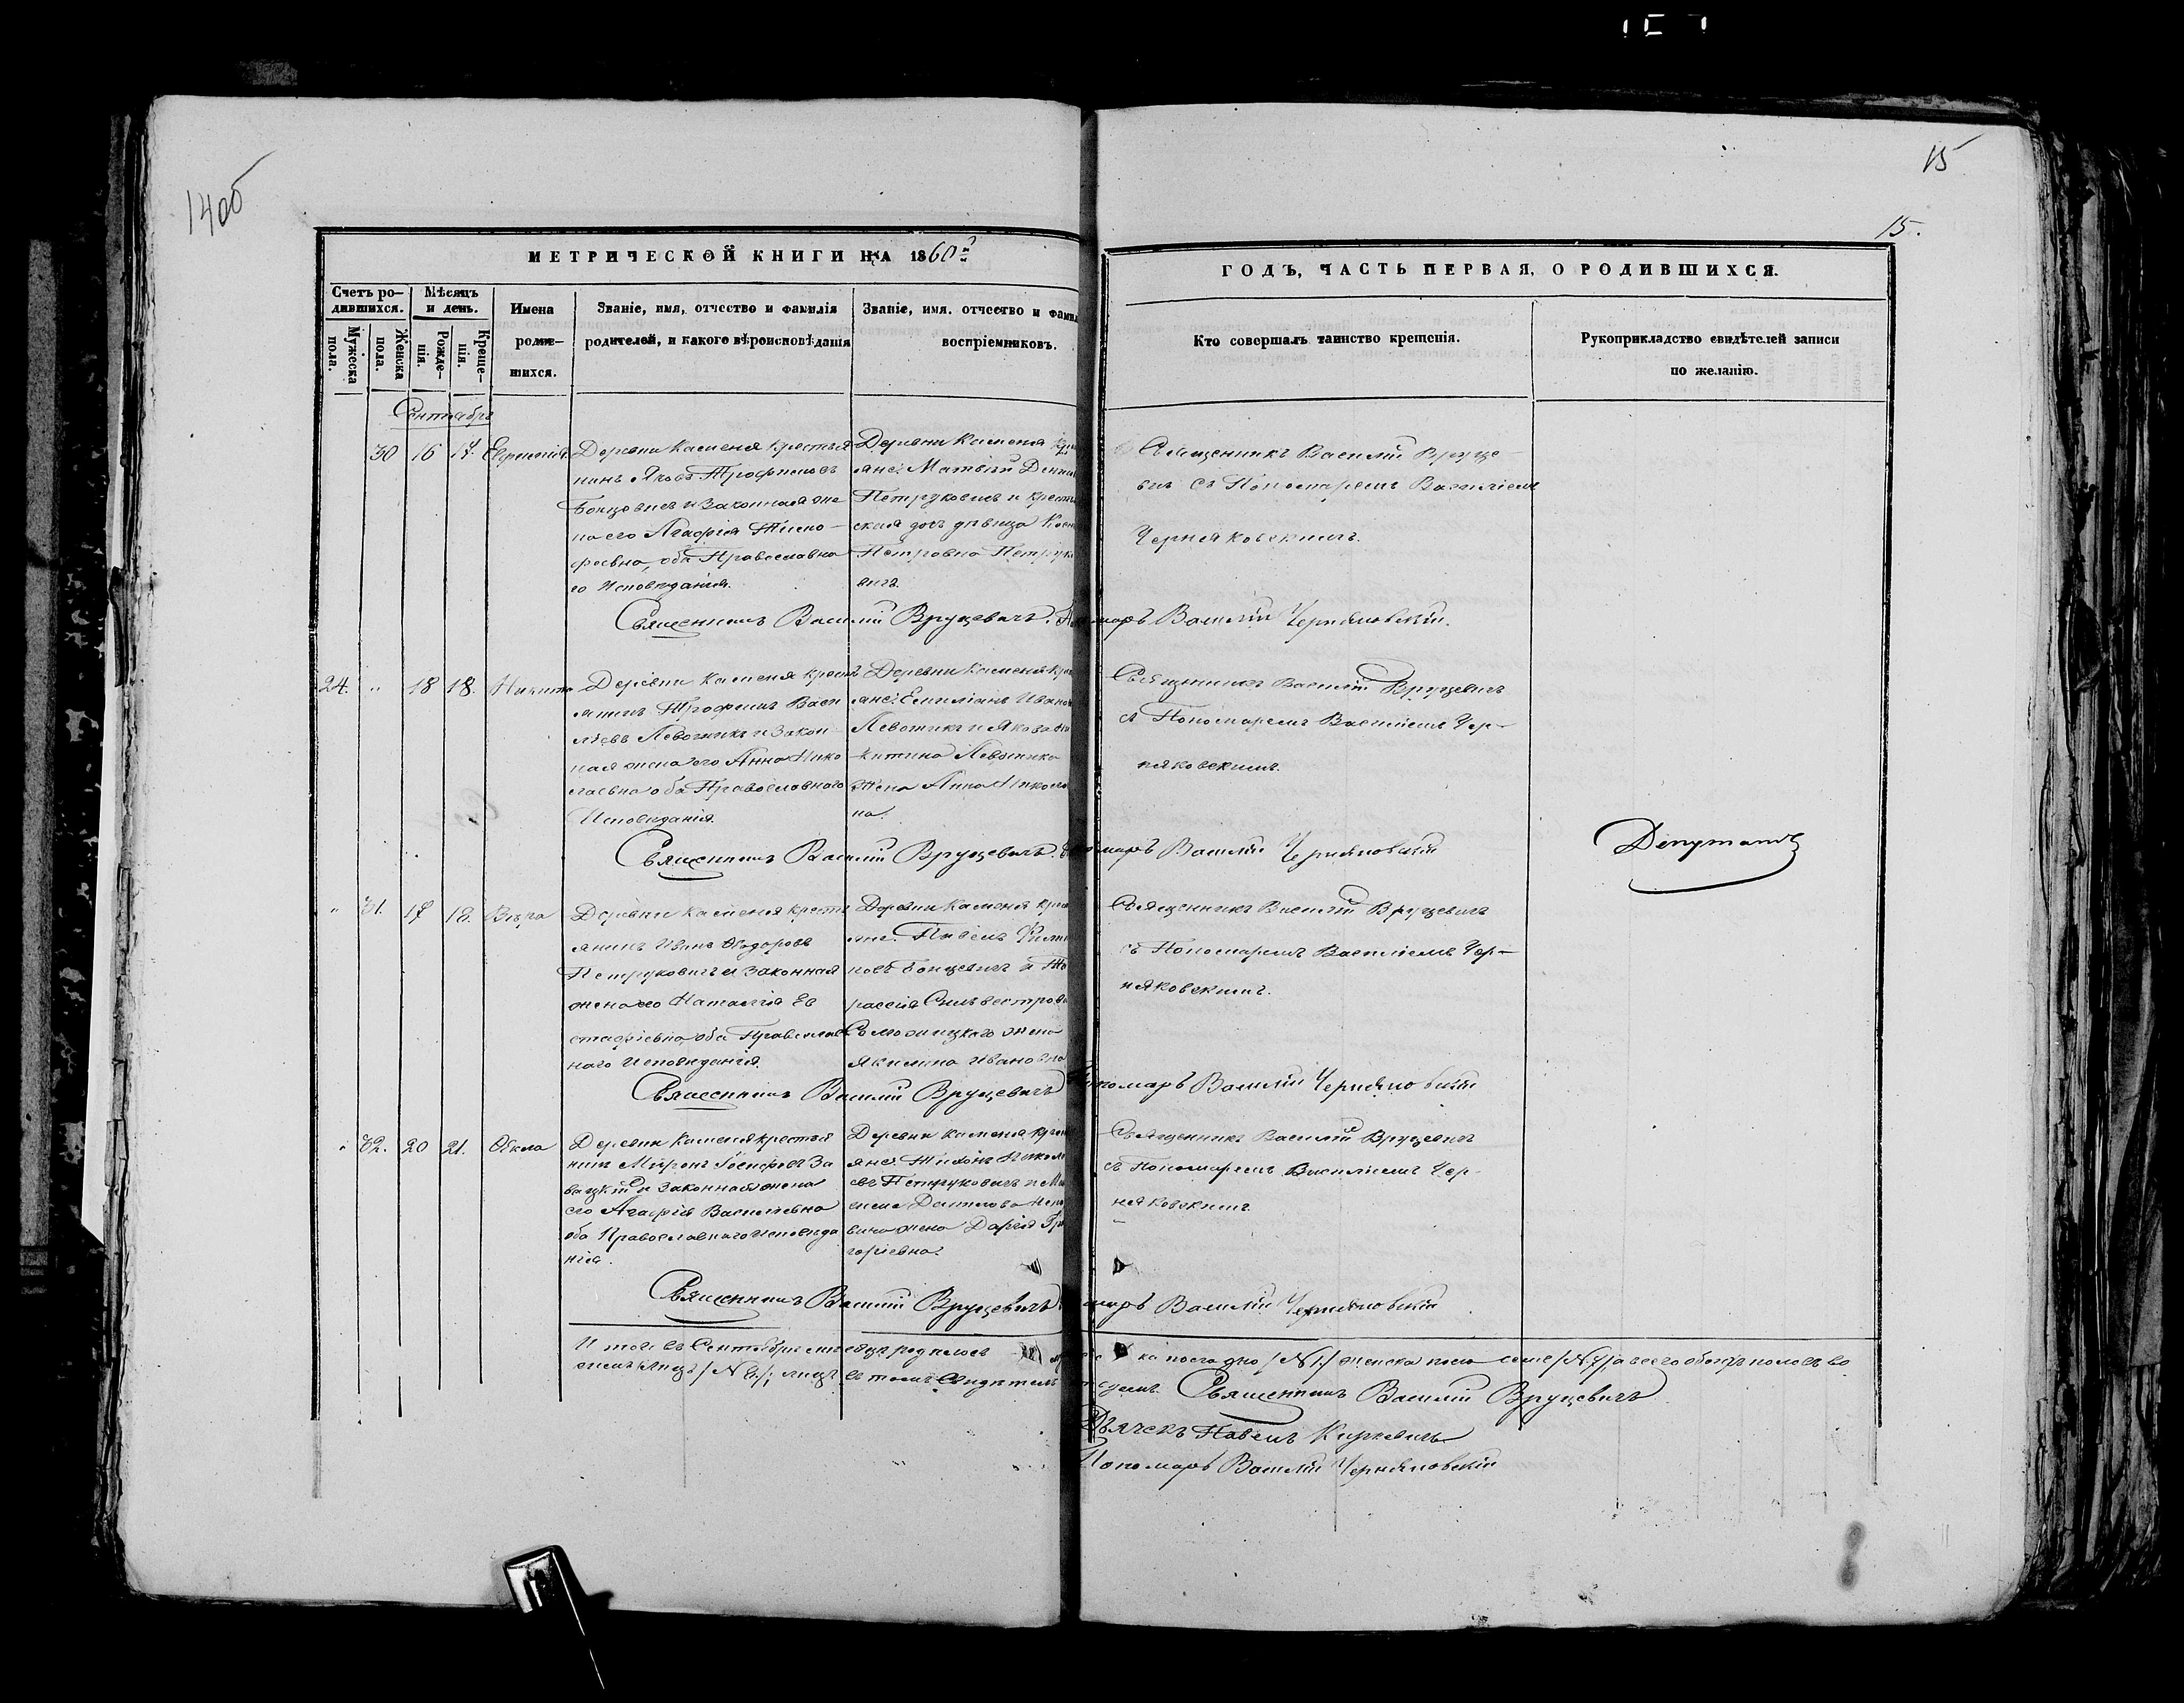 14об
15
15.
МЕТРИЧЕСКОЙ КНИГИ НА 1860й
ГОДЪ, ЧАСТЬ ПЕРВАЯ, О РОДИВШИХСЯ.
Счетъ ро-
дившихся.
Мужеска
пола.
Женска
пола.
Мѣсяцъ
и день.
Рожде-
нія.
Креще-
нія.
Имена
родив-
шихся.
Званіе, имя, отчество и фамилія
родителей, и какого вѣроисповѣданія
Званіе, имя, отчество и фамил
воспріемниковъ.
Кто совершалъ таинство крещенія.
Рукоприкладство свидѣтелей записи
по желанію.
Сентябрь
30 16 17. Евфимія
Деревни Каменя крестья
нинъ Яковъ Трофимовъ
Бонцевичъ и законная же
на его Агафія Тимо-
феевна, оба Православна
го Исповѣданія.
Деревни Каменя кре
яне: Матвѣй
Петруковичъ и крестья
ская дочь дѣвица
Петровна Петрук
Священникъ Василій Вруце-
вичъ съ Пономаремъ Василіемъ
Черняковскимъ.
Священникъ Василій Вруцевичъ. Пономарь Василій Черняковскій.
24. " 18 18. Никита
Деревни Каменя крест
янинъ Трофимъ Васи
льевъ Левоникъ и закон
ная жена его Анна Нико
лаевна оба Православного
Исповѣданія.
Деревни Каменя кре
яне: Емиліанъ Иванов
Левоникъ и Якова Ни
китина Левоника
жена Анна Николаев
на.
Священникъ Василій Вруцевичъ
съ Пономаремъ Василіемъ Чер-
няковскимъ.
Священникъ Василій Вруцевичъ. Пономарь Василій Черняковскій
Депутатъ
" 31. 17 18. Вѣра
Деревни Каменя кресть
янинъ Иванъ Ѳедоровъ
Петруковичъ и законная
жена его Наталія Ев
стафіевна, оба Православ
наго Исповѣданія.
Деревни Каменя кре
яне: Павелъ
новъ Бонцевичъ и
рассія Сильвестрова
жена
Якилина Ивановна
Священникъ Василій Вруцевичъ
съ Пономаремъ Василіемъ Чер-
няковскимъ.
Священникъ Василій Вруцевичъ Пономарь Василій Черняковскій
" 32. 20 21. Ѳекла
Деревни Каменя крестья
нинъ Миронъ Іосифовъ За
вацкій и законная жена
его Агафія Васильевна
оба Православнаго исповѣда
нія.
Деревни Каменя крест
яне: Тихонъ Никола
евъ Петруковичъ и Ма
жена Дарія Гри
горіевна.
Священникъ Василій Вруцевичъ
съ Пономаремъ Василіемъ Чер-
няковскимъ.
Священникъ Василій Вруцевичъ Пономарь Василій Черняковскій
Итого въ Сентябрѣ мѣсяцѣ родилось ска пола одно /№ 1/ женска пола семь /№ 7/ а всего обоего пола во
семь лицъ /№ 8/; въ томъ свидѣтель
Священникъ Василій Вруцевичъ
Дьячекъ Павелъ Киркевичъ
Пономарь Василій Черняковскій